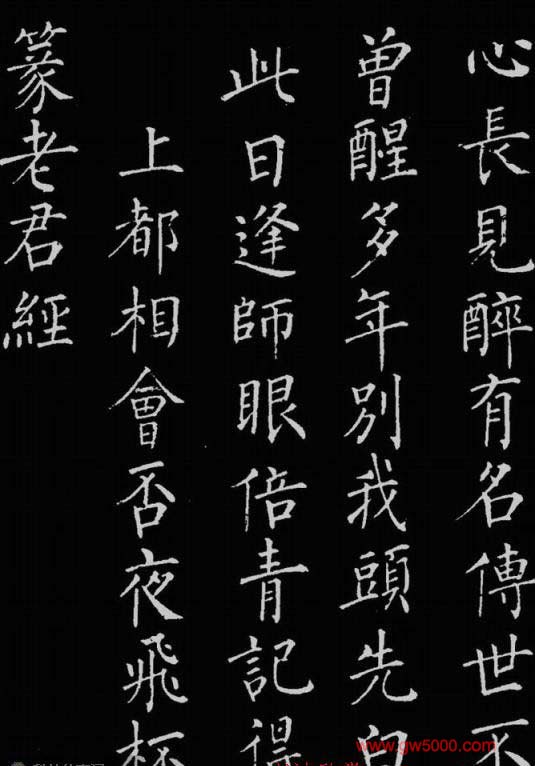 心長見醉有名傳世不
曾醒多年別我頭先白
此日逢師眼倍青記得
上都相會否夜飛杯
篆老君經
www.gw5000.com